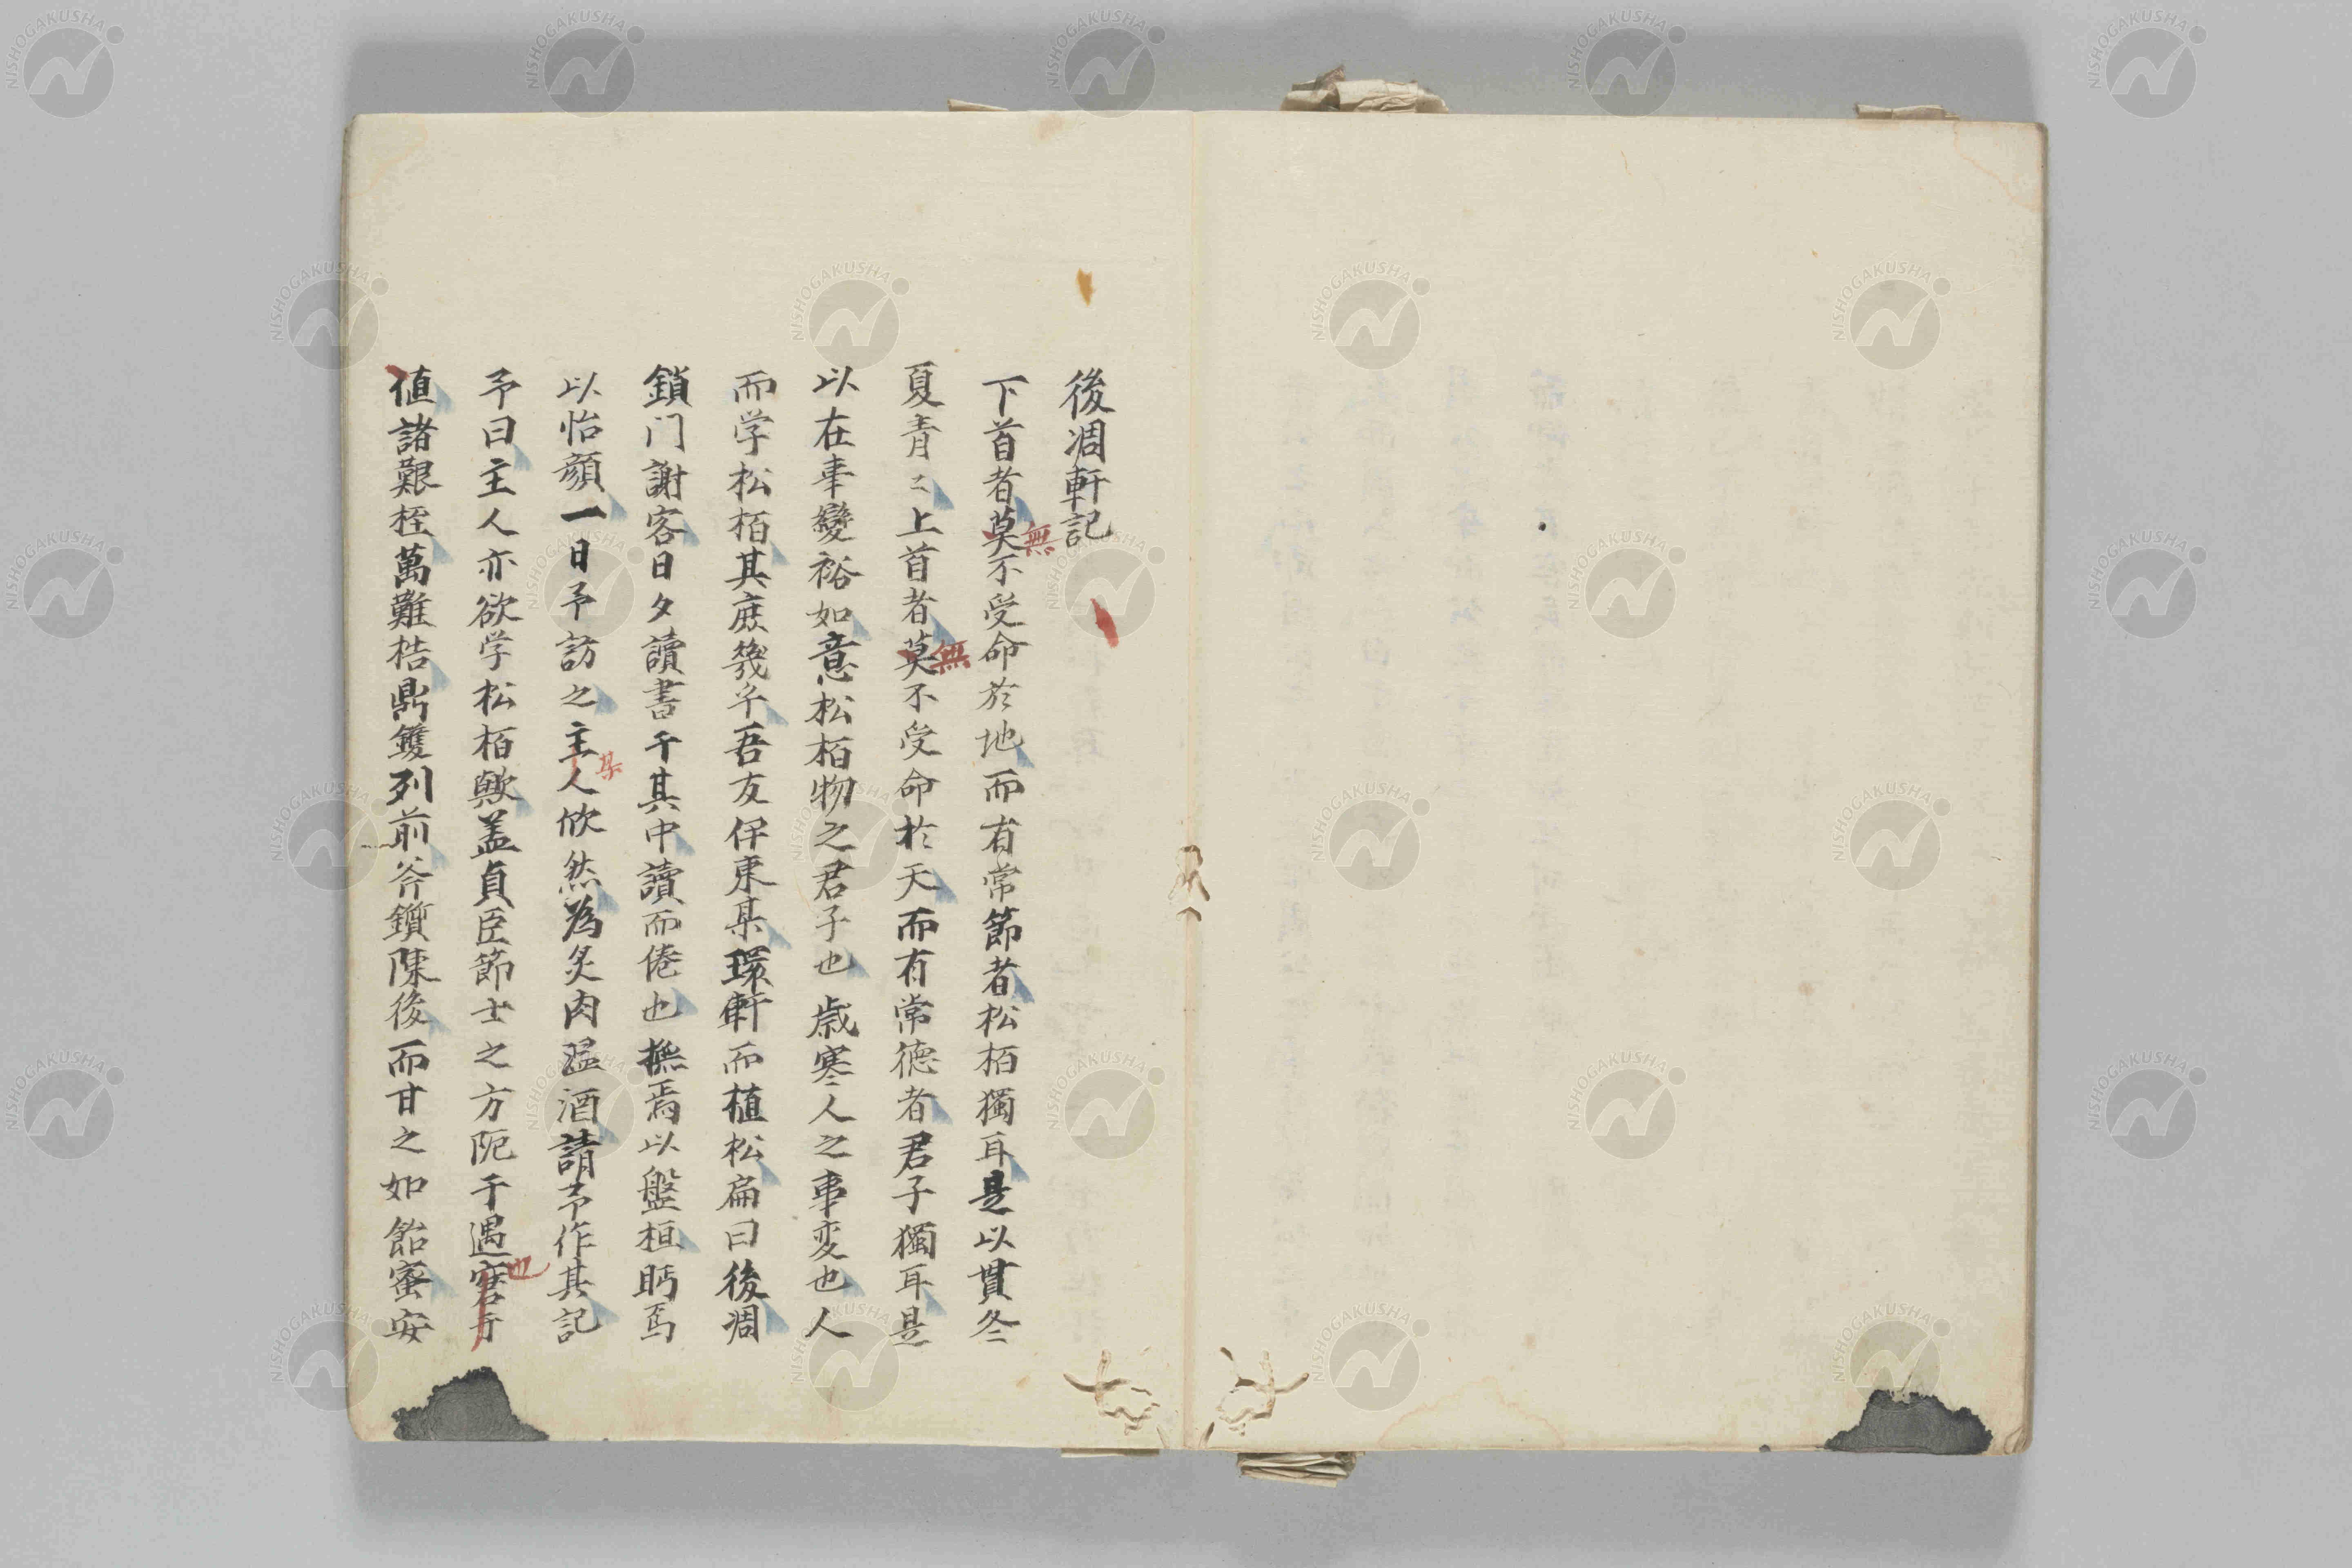 後凋軒記
下首者莫不受命於地而有常節者松栢獨耳是以貫冬
無
夏青々上首者莫不受命於天而有常德者君子獨耳是
無
以在事變裕如意松栢物之君子也歳寒人之事変也人
而学松栢其庶幾乎吾友伴東某環軒而植松扁曰後凋
鎖门謝客日夕讀書于其中讀而倦也撫焉以盤桓眄焉
以怡顔一日予訪之主人欣然為炙肉温酒請予作其記
某
予曰主人亦欲学松栢歟盖貞臣節士之方阨于遇窘于
也
値諸艱桎萬難梏鼎鑊列前斧鑕陳後而甘之如飴蜜安
NISHOGAKUSHA